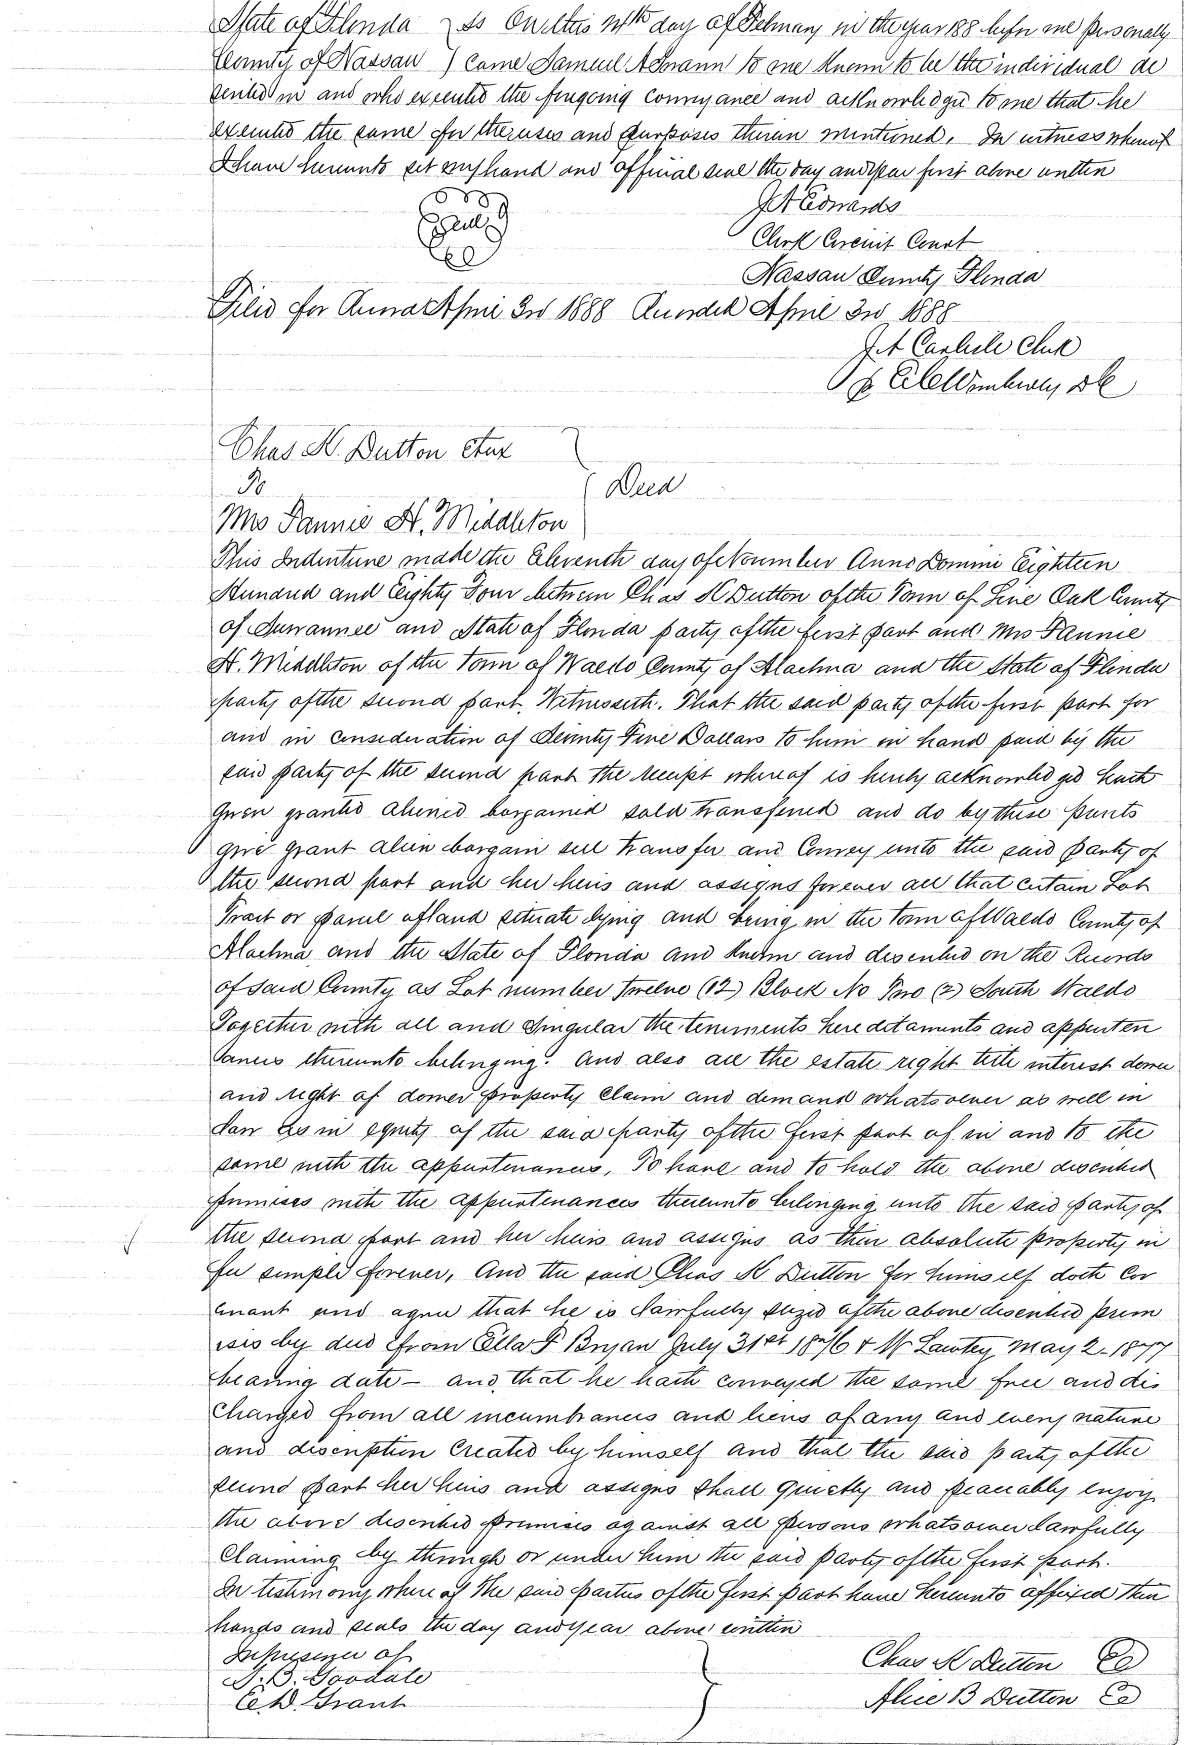 State of Florida } ss On this 14th day of February in the year 188 before me personally
County of Nassau } came Samuel A Swann to me known to be the individual de
scribed in and who executed the foregoing conveyance and acknowledged to me that he
executed the same for the uses and purposes therein mentioned. In witness whereof
I have hereunto set my hand and official seal the day and year first above written
Seal
J A Edwards
Clerk Circuit Court
Nassau County Florida
Filed for April 3rd 1888 Recorded April 3rd 1888
J. A Carlisle Clerk
DC
Chas K. Dutton et ux
To
Deed
Mrs Fannie H. Middleton
This Indenture made the Eleventh day of November Anno Domini Eighteen
Hundred and Eighty Four between Chas K Dutton of the Town of Live Oak County
of Suwannee and State of Florida party of the first part and Mrs Fannie
H. Middleton of the Town of Waldo County of Alachua and the State of Florida
party of the second part. Witnesseth. That the said party of the first part for
and in consideration of Seventy Five Dollars to him in hand paid by the
said party of the second part the receipt whereof is hereby acknowledged hath
given granted aliened bargained sold transferred and do by these presents
give grant alien bargain sell transfer and convey unto the said party of
the second part and her heirs and assigns forever all that certain Lot
Tract or parcel of land situate lying and being in the Town of Waldo County of
Alachua and the State of Florida and known and described on the Records
of said County as Lot number Twelve (12) Block No Two (2) South Waldo
Together with all and singular the tenements hereditaments and appurten
ances thereunto belonging. And also all the estate right title interest dower
and right of dower property claim and demand whatsoever as well in
Law as in equity of the said party of the first part of in and to the
same with the appurtenances, To have and to hold the above described
premises with the appurtenances thereunto belonging unto the said party of
the second part and her heirs and assigns as their absolute property in
fee simple forever, And the said Chas K Dutton for himself doth cov
enant and agree that he is lawfully seized of the above described prem
ises by deed from Ella F Bryan July 31st 1876 & W Lawtey May 2 - 1877
bearing date - and that he hath conveyed the same free and dis
charged from all incumbrances and liens of any and every nature
and discription created by himself and that the said party of the
second part her heirs and assigns shall quietly and peaceably enjoy
the above described premises against all persons whatsoever lawfully
claiming by through or under him the said party of the first part.
In testimony whereof the said parties of the first part have hereunto affixed their
hands and seals the day and year above written
In presence of
T. B. Goodale
E. D. Grant
Chas K Dutton
Alice B Dutton